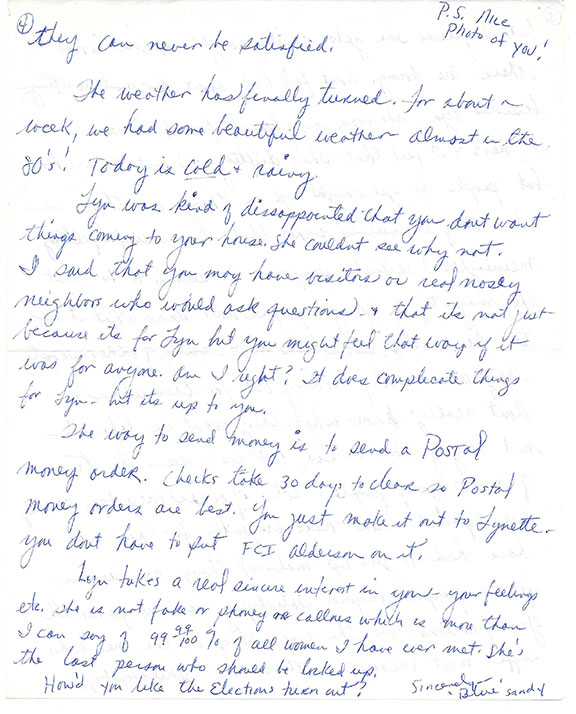 ④
P.S. Nice
Photo of you!
they can never be satisfied.
The weather has finally turned. For about a
week, we had some beautiful weather almost in the
80's! Today is cold & rainy
Lyn was kind of dissappointed that you dont want
things coming to your house. She couldnt see why not.
I said that you may have visitors or real nosey
neighbors who would ask questions - & that its not just
because its for Lyn but you might feel that way if it
was for anyone. Am I right? It does complicate things
for Lyn - but its up to you.
The way to send money is to send a Postal
money order. Checks take 30 days to clear so Postal
money orders are best. You just make it out to Lynette -
you dont have to put FCI Alderson on it.
Lyn takes a real sincere interest in you - your feelings
etc. She is not fake or phoney or callous which is more than
I can say of 99 99/100 % of all women I have ever met. She's
the last person who should be locked up.
How'd you like the Elections turn out?
Sincerely -
"Blue" Sandy